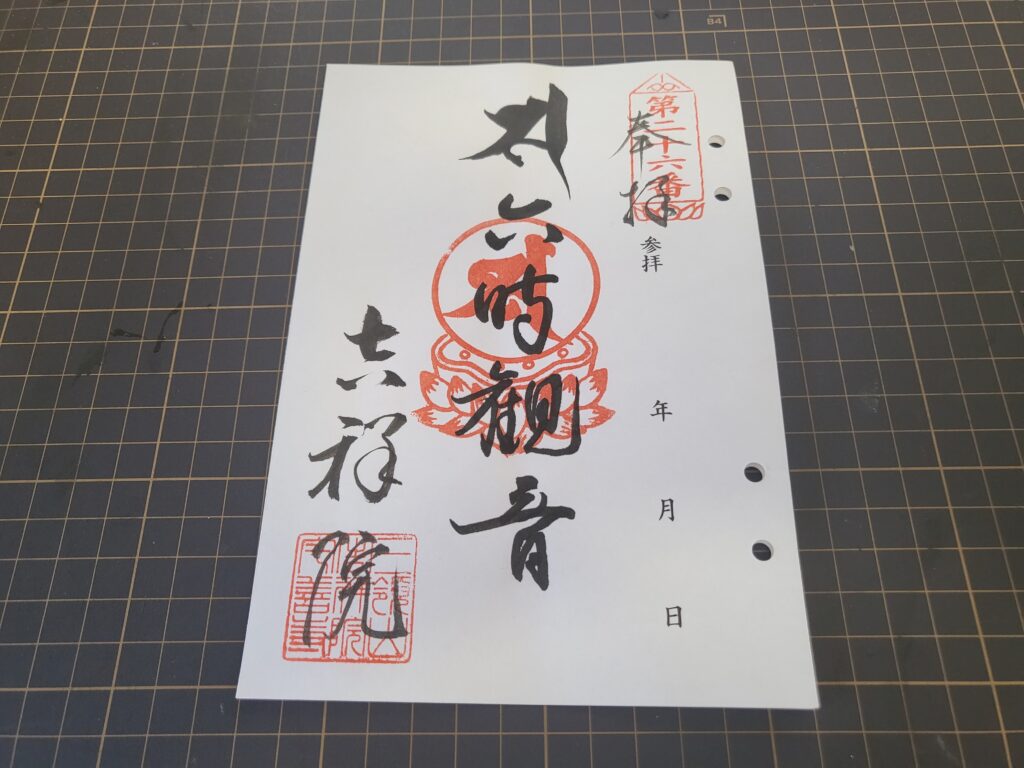 第二十六番
奉拝
参拝
年 月 日
六時観音
吉祥院
B4